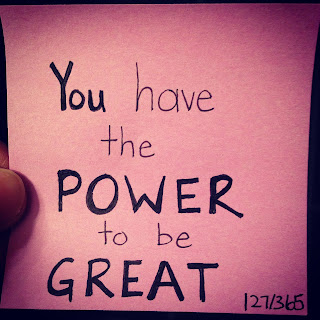 You have
the
POWER
to be
GREAT
127/365